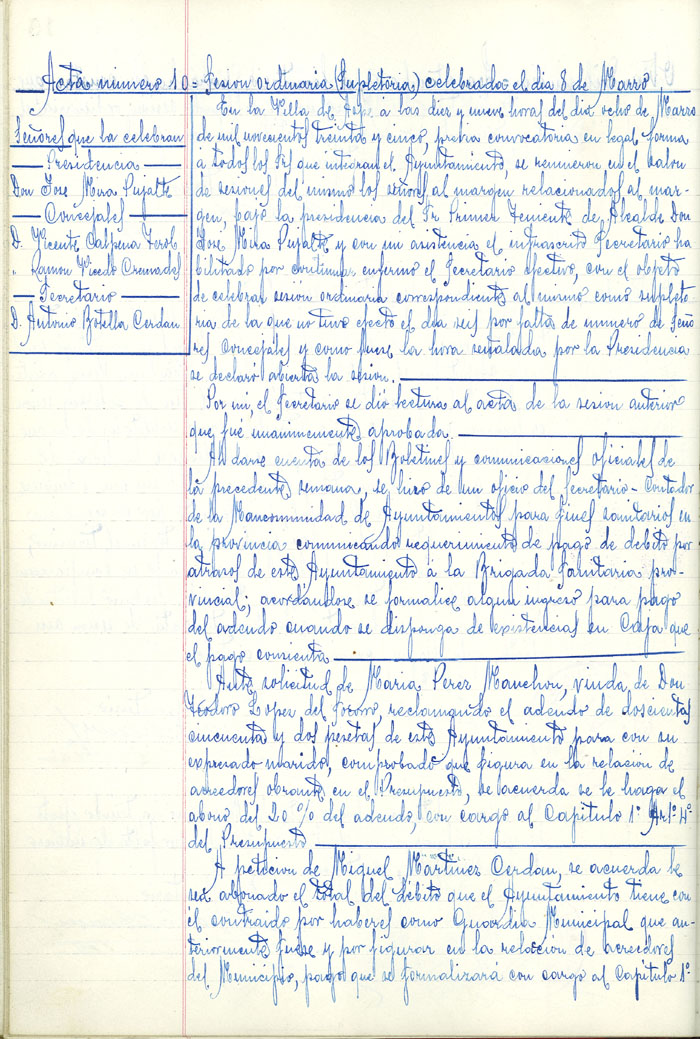 Acta número 10 = Sesion ordinaria (Supletoria) celebrada el dia 8 de Marzo
Señores que la celebran
Presidencia
Don Jose Mira Pujalte
Concejales
D. Vicente Calpena Terol
" Ramon Vicedo Cremades
Secretario
D. Antonio Botella Cerdan
En la Villa de Aspe a las diez y nueve horas del dia ocho de Marzo
de mil novecientos treinta y cinco, previa convocatoria en legal forma
a todos los Srs. que integran el Ayuntamiento, se reunieron en el salon
de sesiones del mismo los señores al margen relacionados al mar-
gen, bajo la presidencia del Sr Primer Teniente de Alcalde Don
Jose Mira Pujalte y con mi asistencia el infrascrito Secretario ha
bilitado por continuar enfermo el Secretario efectivo, con el objeto
de celebrar sesion ordinaria correspondiente al mismo como supleto
ria de la que no tuvo efecto el dia seis por falta de numero de Seño
res Concejales y como fuese la hora señalada por la Presidencia
se declaró abierta la sesion.
Por mi, el Secretario se dió lectura al acta de la sesion anterior
que fué unanimemente aprobada.
Al darse cuenta de los Boletines y comunicaciones oficiales de
la precedente semana, se hizo de un oficio del Secretario-Contador
de la Mancomunidad de Ayuntamientos para fines sanitarios en
la provincia comunicando requerimiento de pago de debito por
atrasos de este Ayuntamiento á la Brigada Sanitaria pro-
vincial; acordandose se formalice algun ingreso para pago
del adeudo cuando se disponga de existencias en Caja que
el pago consienta
Ante solicitud de Maria Perez Manchon, viuda de Don
Teodoro Lopez del Socorro, reclamando el adeudo de doscientas
cincuenta y dos pesetas de este Ayuntamiento para con su
expresado marido, comprobado que figura en la relacion de
acreedores obrante en el Presupuesto, se acuerda se le haga el
abono del 20% del adeudo, con cargo al Capitulo 1º Art.º 4º
del Presupuesto
A peticion de Miguel Martinez Cerdan, se acuerda le
sea abonado el total del débito que el Ayuntamiento tiene con
él contraido por haberes como Guardia Municipal que an-
teriormente fuese y por figurar en la relacion de acreedores
del Municipio, pago que se formalizará con cargo al Capitulo 1º